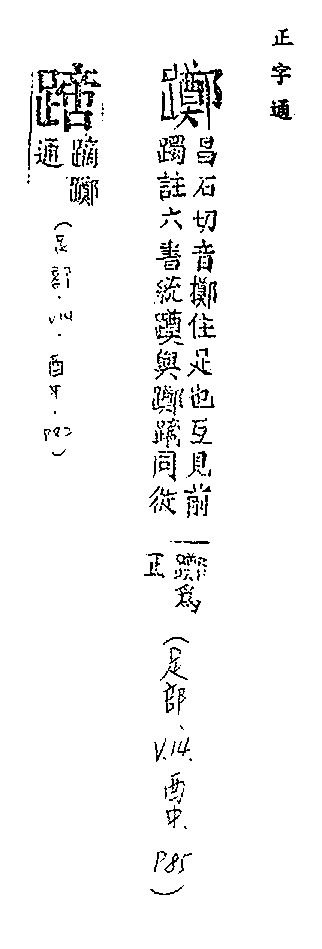 正字通
躑
昌石切音擲住足也互見前
躅註六書統蹢與躑蹢同從
躑爲
正
(足部.V.14.酉中.P85)
蹢躑
通
(足部.V14.酉中.P82)